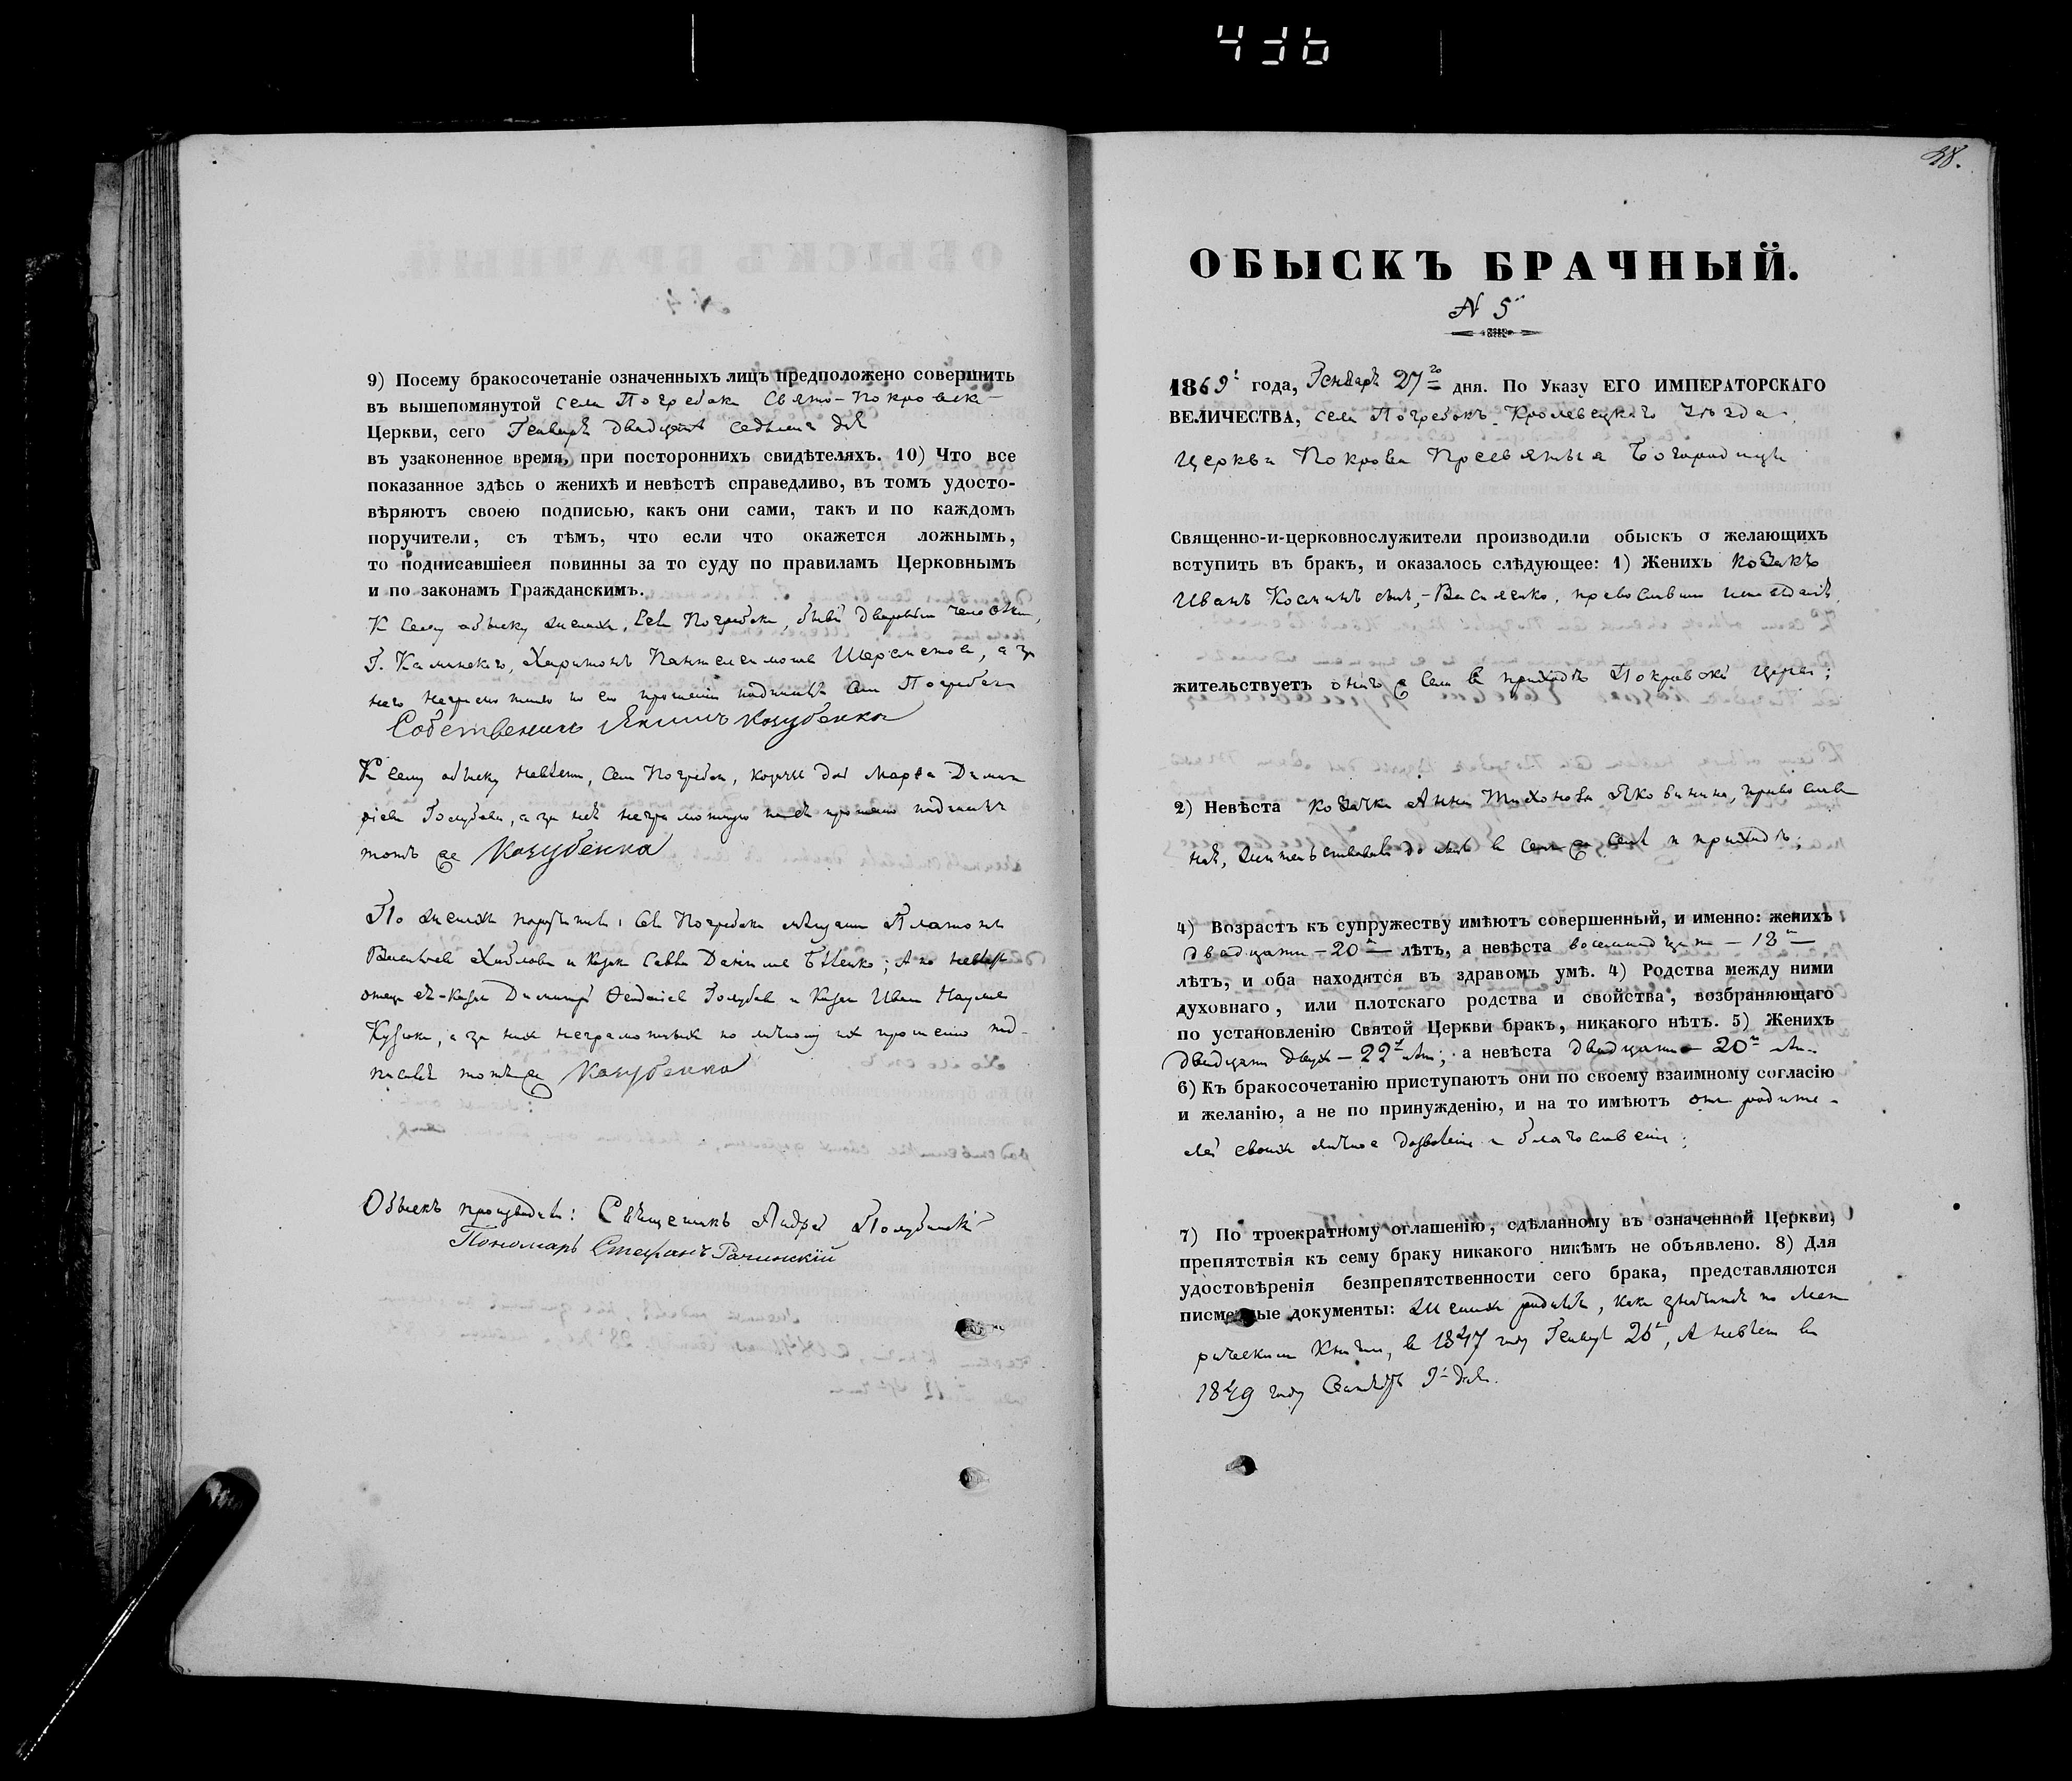 9) Посему бракосочетаніе означенныхъ лицъ предположено совершить
въ вышепомянутой села Погребокъ Свято-Покровск-
Церкви, сего Генваря двадцать седьмаго дня
въ узаконенное время, при постороннихъ свидѣтеляхъ. 10) Что все
показанное здѣсь о женихѣ и невѣстѣ справедливо, въ томъ удосто-
вѣряютъ своею подписью, какъ они сами, такъ и по каждомъ
поручители, съ тѣмъ, что если что окажется ложнымъ,
то подписавшіеся повинны за то суду по правиламъ Церковнымъ
и по законамъ Гражданскимъ.
К сему обыску женихъ, Погребокъ,
Г. Харитонъ Пантелеимоновъ Шереметов, а за
него неграмотнаго по его прошенію подписался Погребокъ
Собственикъ Козубенко
К сему обыску невѣста, села Погребокъ, Марѳа Димит
ріева Голубева, а за неё неграмотную по её прошенію подписался
тотъ же Козубенко
По женихѣ поручители: Погребокъ Платонъ
Васильевъ и козакъ Савва ; А по невѣстѣ
отецъ её-козакъ Димитрій Голубев и козакъ Иван Наумов
а за них неграмотных по личному их прошению под-
писался тотъ же Козубенко
Обыскъ производили: Священникъ Андрей Голубинскій
Пономарь Стефанъ Рачинскій
436
28.
ОБЫСКЪ БРАЧНЫЙ.
N 5
1869 года, Генваря 27го дня. По Указу ЕГО ИМПЕРАТОРСКАГО
ВЕЛИЧЕСТВА, села Погребокъ Кролевецкаго уѣзда
Церкви Покрова Пресвятыя Богородицы
Священно-и-церковнослужители производили обыскъ о желающихъ
вступить въ бракъ, и оказалось слѣдующее: 1) Женихъ козакъ
Иванъ Косминъ сынъ, Василенко, православн исповѣданія,
жительствуетъ онаго же села в приходѣ Покровской церкви;
2) Невѣста козачка Анна Тихонова Яковинина, православ
ная, жительствовала до нынѣ в семъ же селѣ и приходѣ;
4) Возрастъ къ супружеству имѣютъ совершенный, и именно: женихъ
двадцати - 20 - лѣтъ, а невѣста восемнадцати - 18 -
лѣтъ, и оба находятся въ здравомъ умѣ. 4) Родства между ними
духовнаго, или плотскаго родства и свойства, возбраняющаго
по установленію Святой Церкви бракъ, никакого нѣтъ. 5) Женихъ
двадцати двух - 22 лѣт; а невѣста двадцати - 20 лѣт.
6) Къ бракосочетанію приступаютъ они по своему взаимному согласію
и желанію, а не по принужденію, и на то имѣютъ отъ родите-
лей своихъ личное дозволеніе и благословеніе;
7) По троекратному оглашенію, сдѣланному въ означенной Церкви,
препятствія къ сему браку никакого никѣмъ не объявлено. 8) Для
удостовѣренія безпрепятственности сего брака, представляются
писменные документы: Женихъ родился, какъ значится по Мет
рическим Книгам, в 1847 году Генваря 26, А невѣста в
1849 году 9 дня.